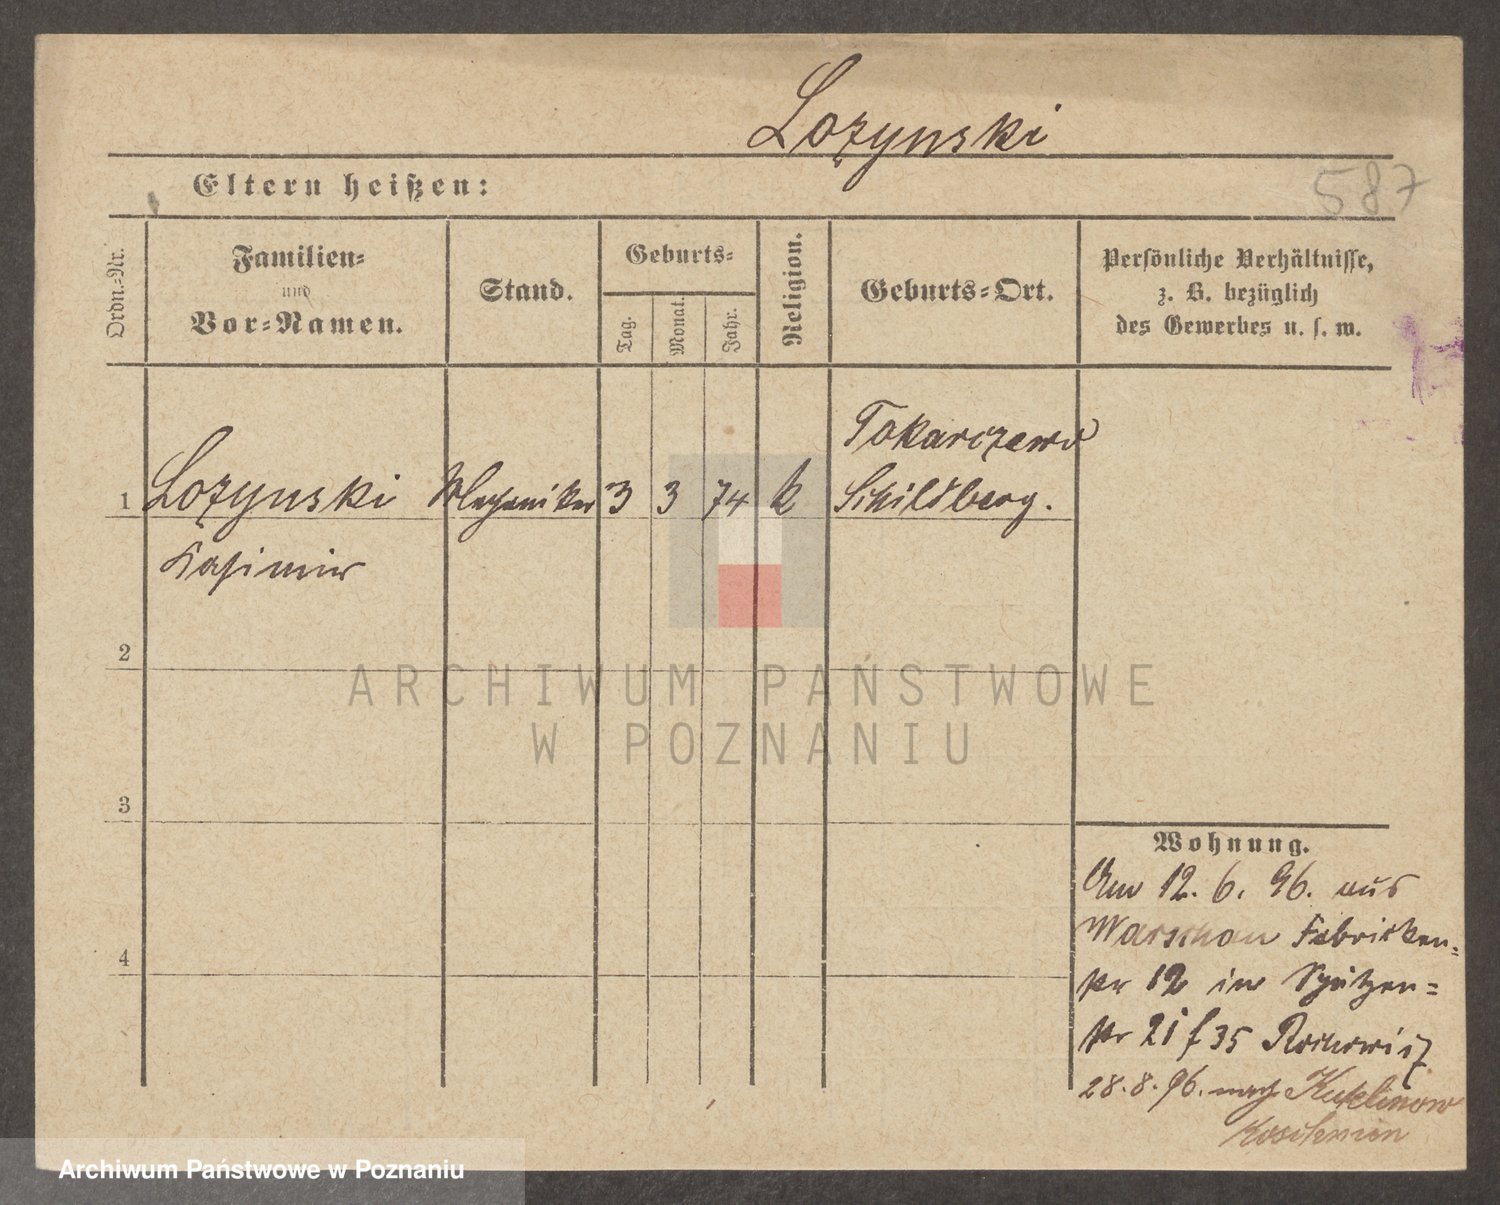 Lozynski
Eltern heißen:
587
Ordn.-Nr.
Familien-
und
Vor-Namen.
Stand.
Geburts-
Tag.
Monat.
Jahr.
Religion.
Geburts-Ort.
Persönliche Verhältnisse,
z. B. bezüglich
des Gewerbes u. s. w.
Tokarczewo
1 Lozynski Mechaniker 3 3 74 k Schildberg.
Kasimir
2
ARCHIWUM PAŃSTWOWE
W POZNANIU
3
Wohnung.
Am 12. 6. 96. aus
Warschau Fabricken-
str 12 in Schützen-
str 21 f 35
4
28.8.96. nach Kuklinow
Koschmin
Archiwum Państwowe w Poznaniu